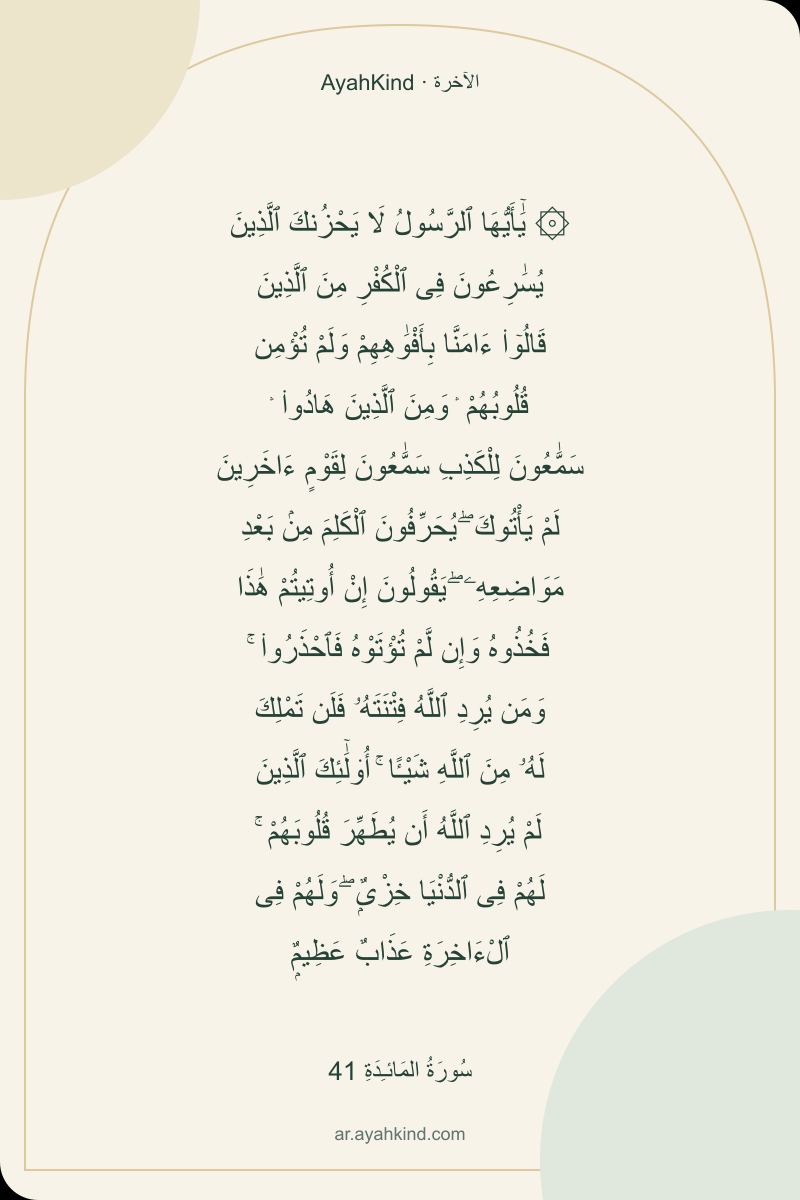 AyahKind · الآخرة
۞ يَٰٓأَيُّهَا ٱلرَّسُولُ لَا يَحْزُنكَ ٱلَّذِينَ
يُسَٰرِعُونَ فِى ٱلْكُفْرِ مِنَ ٱلَّذِينَ
قَالُوٓا۟ ءَامَنَّا بِأَفْوَٰهِهِمْ وَلَمْ تُؤْمِن
قُلُوبُهُمْ ۛ وَمِنَ ٱلَّذِينَ هَادُوا۟ ۛ
سَمَّٰعُونَ لِلْكَذِبِ سَمَّٰعُونَ لِقَوْمٍ ءَاخَرِينَ
لَمْ يَأْتُوكَ ۖ يُحَرِّفُونَ ٱلْكَلِمَ مِنۢ بَعْدِ
مَوَاضِعِهِۦ ۖ يَقُولُونَ إِنْ أُوتِيتُمْ هَٰذَا
فَخُذُوهُ وَإِن لَّمْ تُؤْتَوْهُ فَٱحْذَرُوا۟ ۚ
وَمَن يُرِدِ ٱللَّهُ فِتْنَتَهُۥ فَلَن تَمْلِكَ
لَهُۥ مِنَ ٱللَّهِ شَيْـًٔا ۚ أُو۟لَٰٓئِكَ ٱلَّذِينَ
لَمْ يُرِدِ ٱللَّهُ أَن يُطَهِّرَ قُلُوبَهُمْ ۚ
لَهُمْ فِى ٱلدُّنْيَا خِزْىٌۭ ۖ وَلَهُمْ فِى
ٱلْءَاخِرَةِ عَذَابٌ عَظِيمٌۭ
سُورَةُ المَائـِدَةِ 41
ar.ayahkind.com